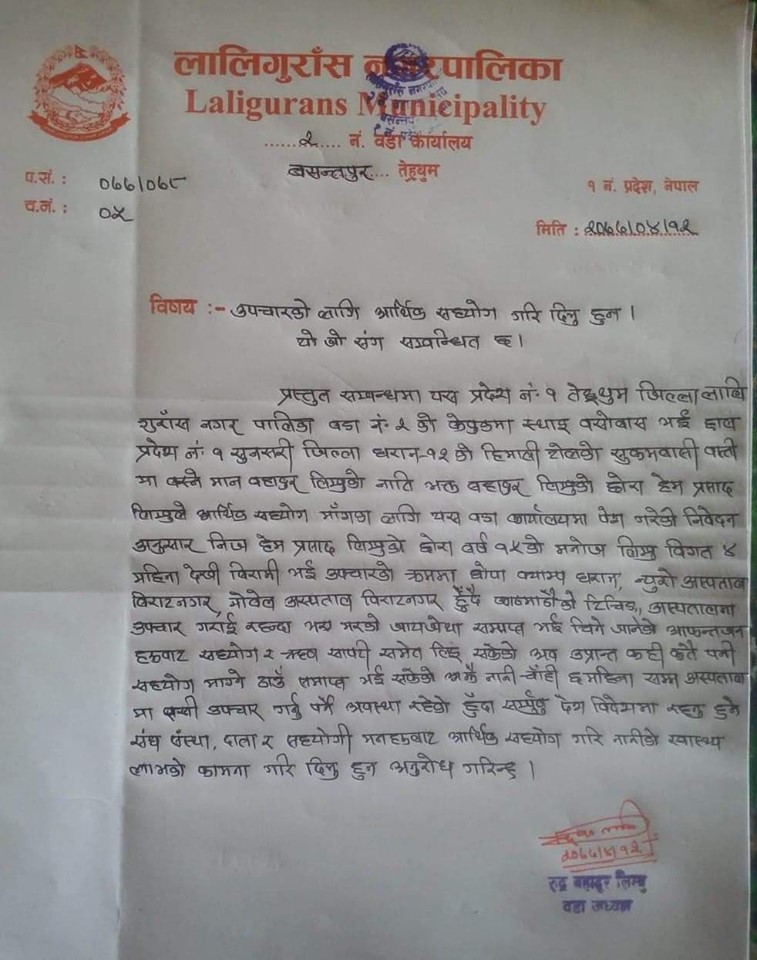 लालिगुराँस नगरपालिका
Laligurans Municipality
२ नं. वडा कार्यालय
बसन्तपुर तेह्रथुम
१ नं. प्रदेश, नेपाल
प.सं. : ०७७/०७८
च.नं. : ०५
मिति : २०७७/०४/१२
विषय :- उपचारको लागि आर्थिक सहयोग गरि दिनु हुन ।
यो जो संग सम्वन्धित छ ।
प्रस्तुत सम्बन्धमा यस प्रदेश नं. १ तेह्रथुम जिल्ला लालि
गुराँस नगर पालिका वडा नं. २ को केपुकमा स्थाइ वसोवास भई हाल
प्रदेश नं. १ सुनसरी जिल्ला धरान-१२ को हिमाली टोलको सुकुमवासी वस्ती
मा वस्ने मान वहादुर लिम्वुको नाति भक्त वहादुर लिम्वुको छोरा हेम प्रसाद
लिम्वुले आर्थिक सहयोग माँगका लागि यस वडा कार्यालयमा पेश गरेको निवेदन
अनुसार निज हेम प्रसाद लिम्वुको छोरा वर्ष १५को मनोज लिम्वु विगत ४
महिना देखी विरामी भई उपचारको क्रममा घोपा क्याम्प धरान, न्युरो अस्पताल
विराटनगर, नोवेल अस्पताल विराटनगर हुँदै काठमाडौको टिचिङ, अस्पतालमा
उपचार गराई रहन्दा भए भरको जायजेथा सम्पती भई चिने जानेको आफन्तजन
हरुवाट सहयोग र ऋण सापटी समेत लिई सकेको अव उप्रान्त कही कतै पनी
सहयोग माग्ने ठाउँ समाप्त भई सकेको अझै नानी चाँही ६ महिना सम्म अस्पताल
मा राखी उपचार गर्नु पर्ने अवस्था रहेको हुँदा सम्पुर्ण देश विदेशमा रहनु हुने
संघ संस्था, दाता र सहयोगी मनहरुवाट आर्थिक सहयोग गरि नानीको स्वास्थ्य
लाभको कामना गरि दिनु हुन अनुरोध गरिन्छ ।
२०७७/४/१२
रुद्र बहादुर लिम्बु
वडा अध्यक्ष